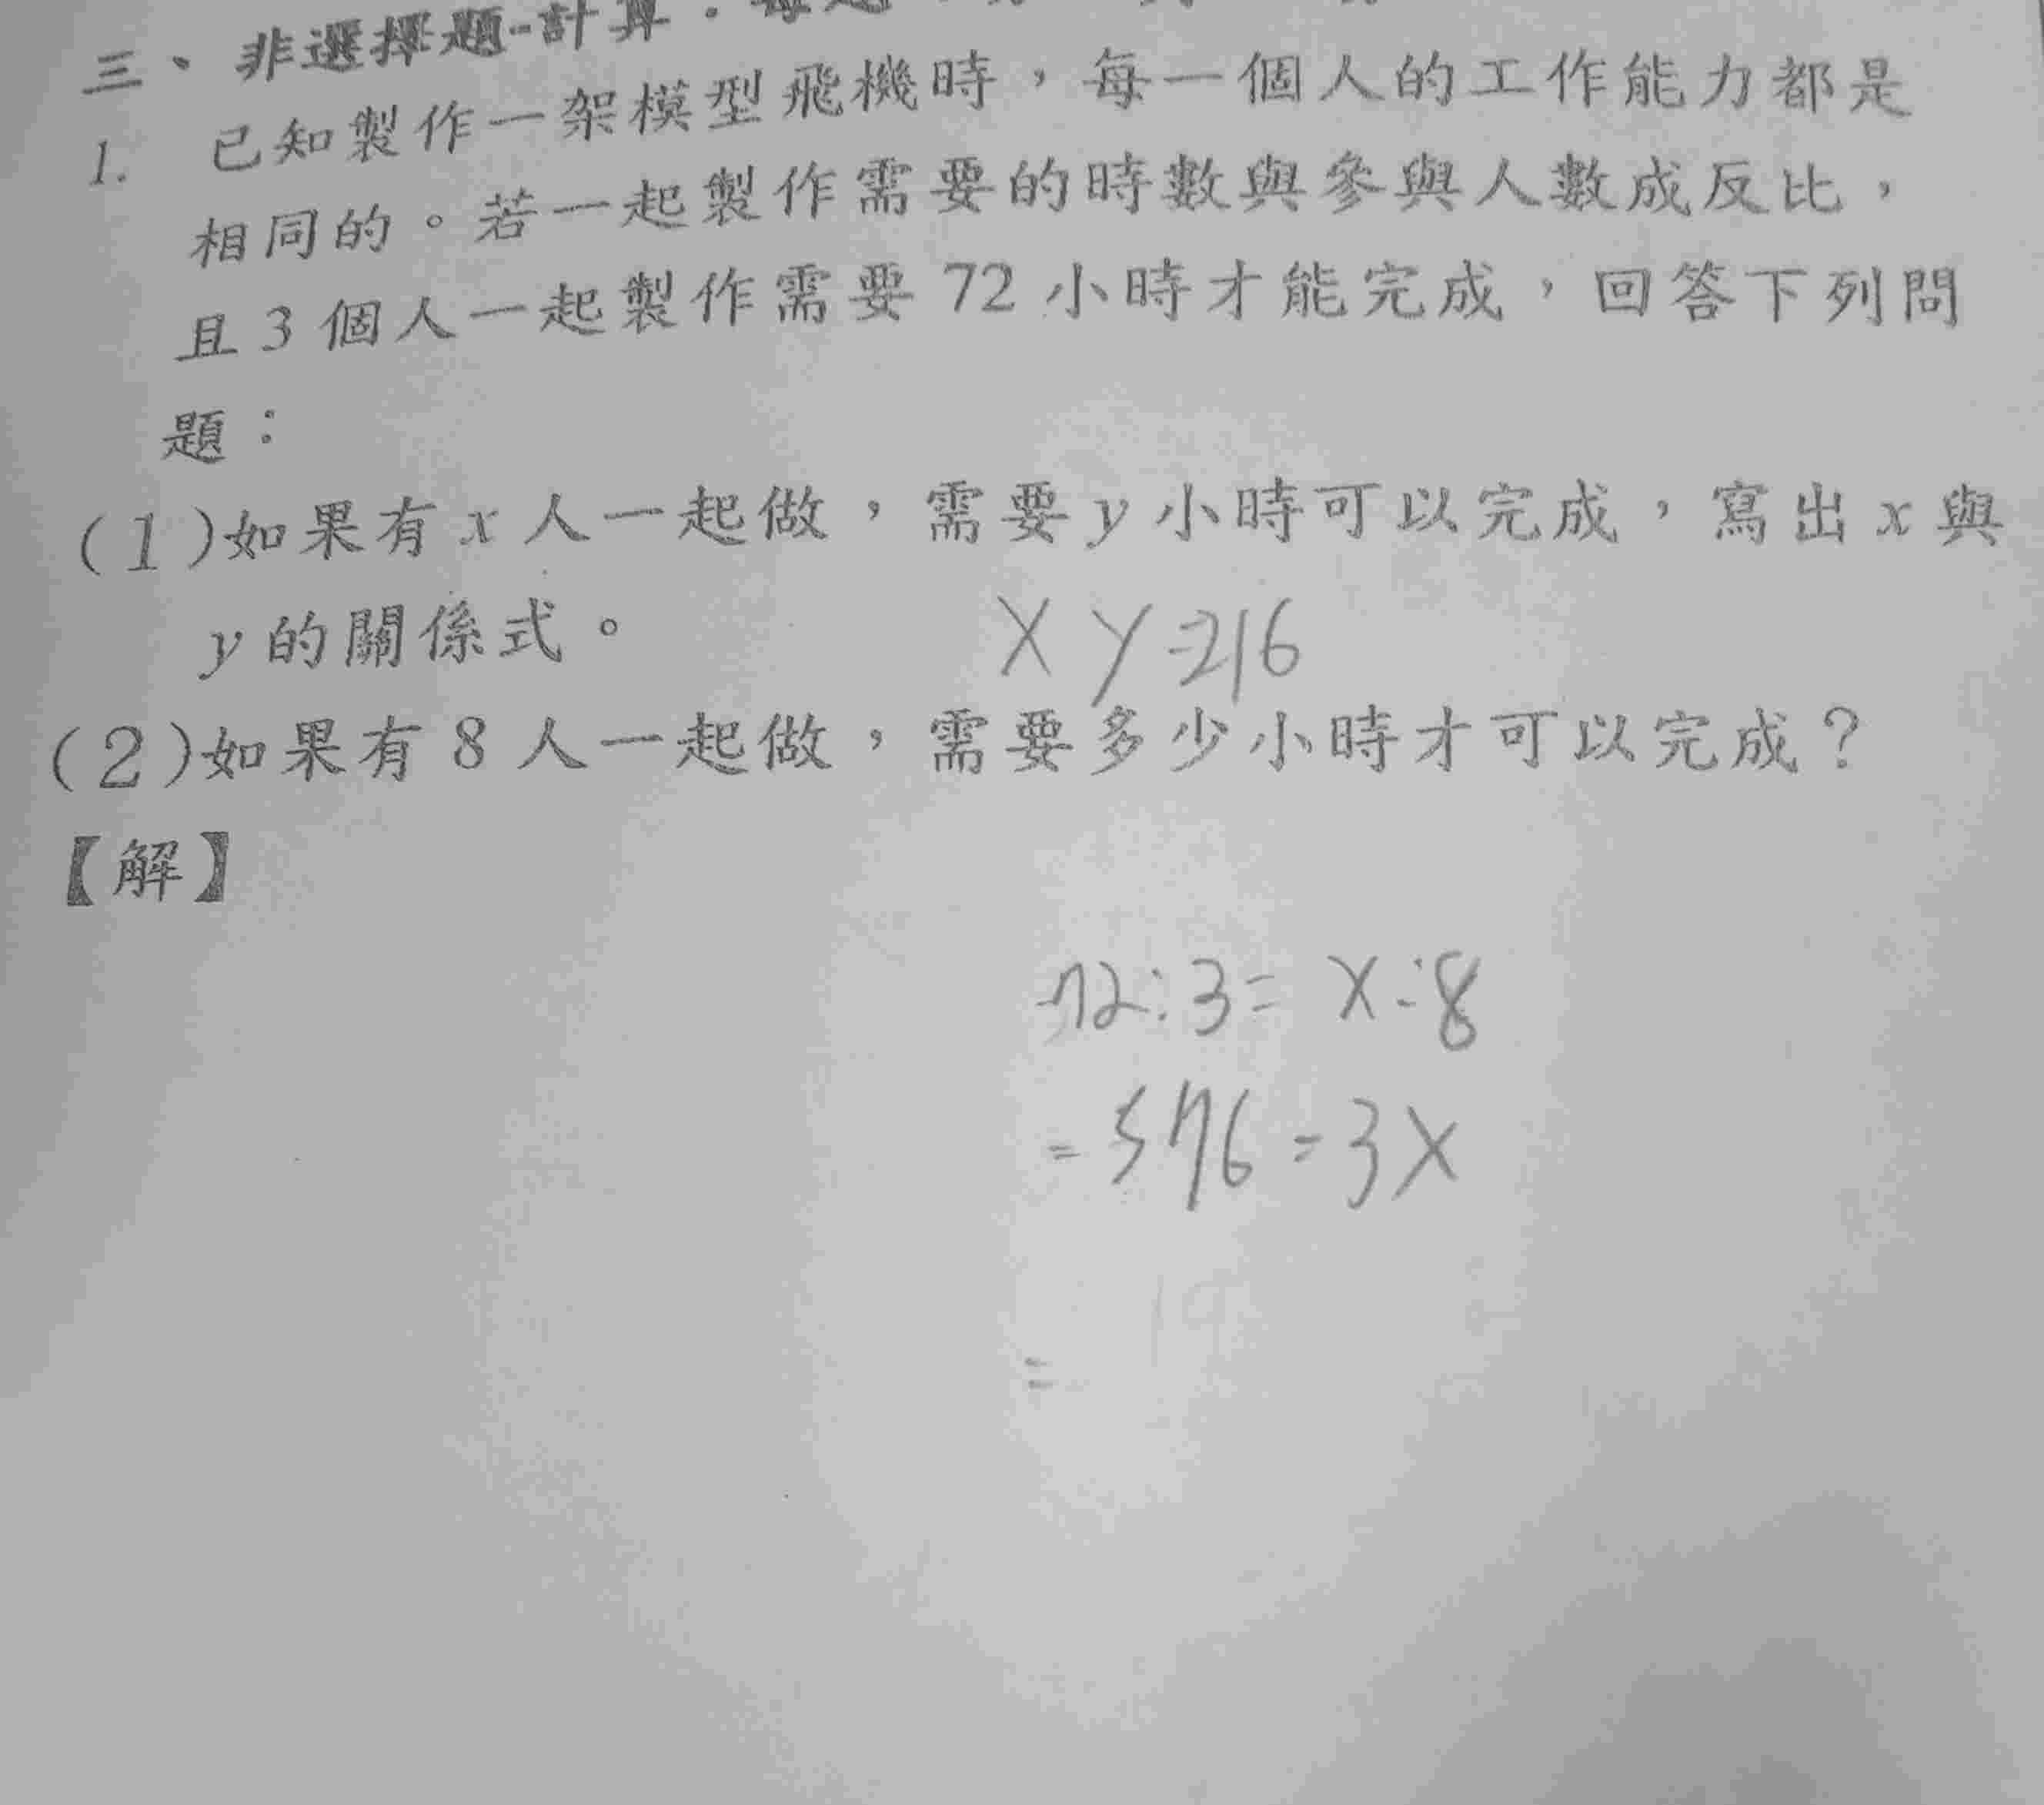 三、非選擇題-計算：每題
1. 已知製作一架模型飛機時，每一個人的工作能力都是
相同的。若一起製作需要的時數與參與人數成反比，
且 3 個人一起製作需要 72 小時才能完成，回答下列問
題：
(1)如果有 x 人一起做，需要 y 小時可以完成，寫出 x 與
y 的關係式。
X Y=216
(2)如果有 8 人一起做，需要多少小時才可以完成？
【解】
72:3= X:8
=576=3X
=